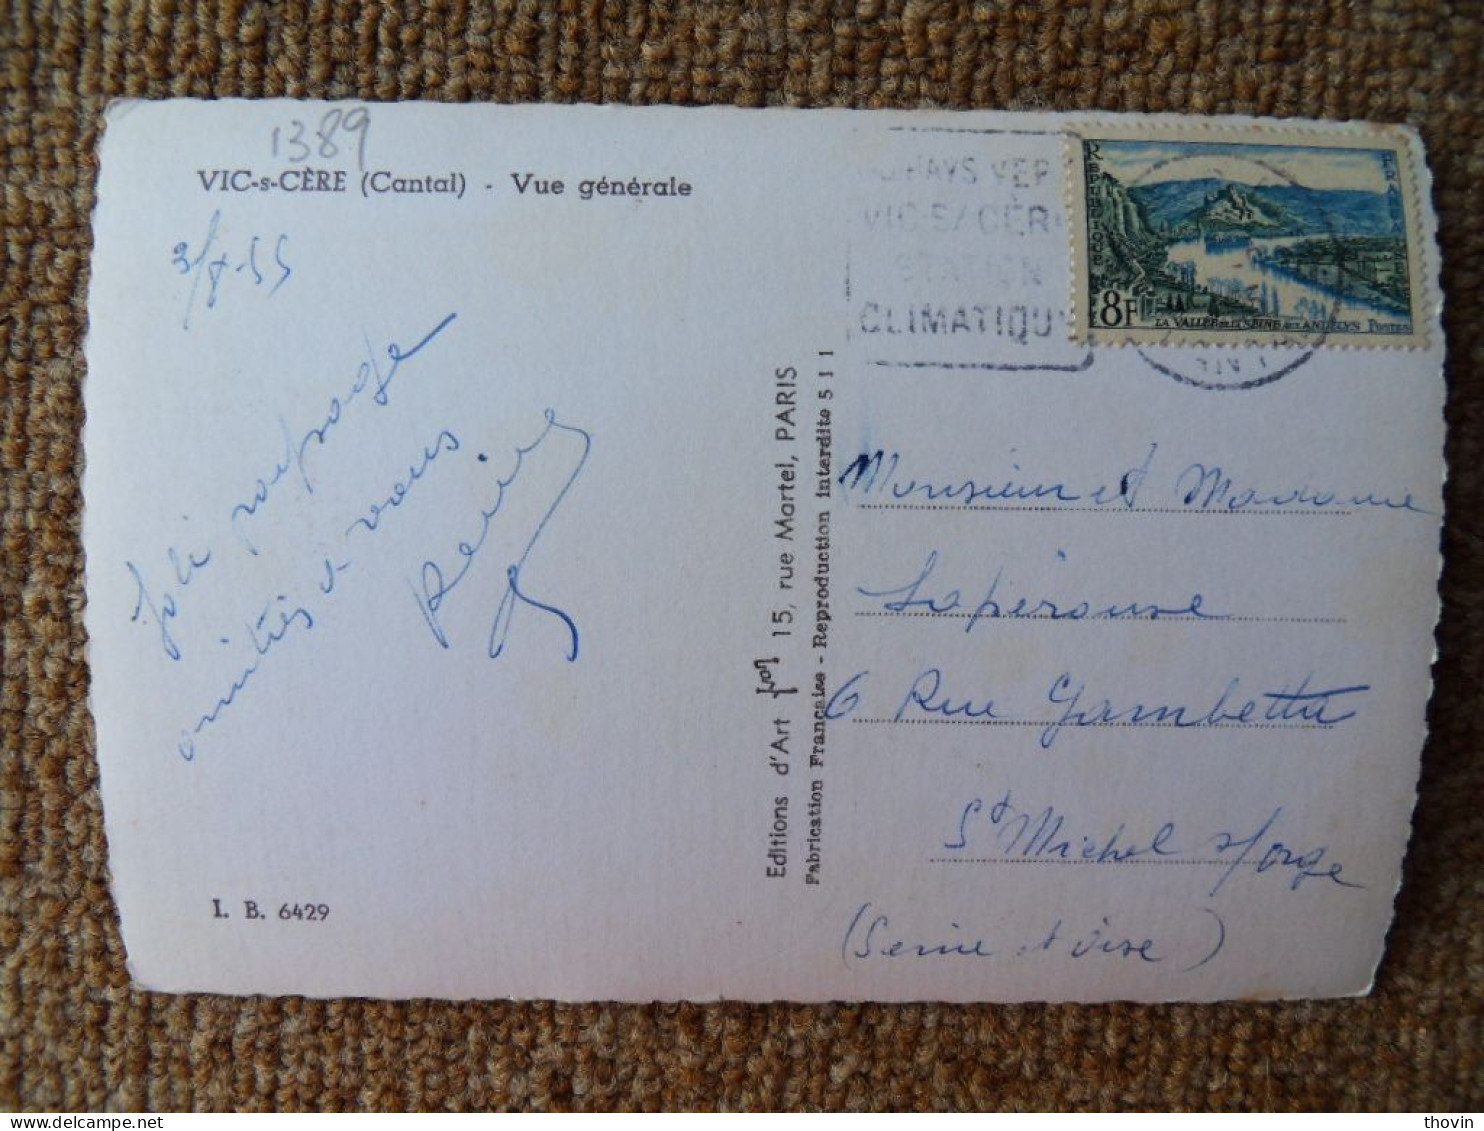 1389
VIC-s-CÈRE (Cantal) - Vue générale
3/8-55
Joli paysage
amitiés à vous
I. B. 6429
Editions d'Art Yvon 15, rue Martel, PARIS
Fabrication Française - Reproduction interdite 511
PAYS VER
VIC S/ CÈR
STATION
CLIMATIQU
REPUBLIQUE FRANÇAISE
8F
LA VALLÉE DE LA SEINE AUX ANDELYS POSTES
Monsieur et Madame
Lapérouse
6 Rue Gambetta
St Michel s/orge
(Seine et Oise)
thovin